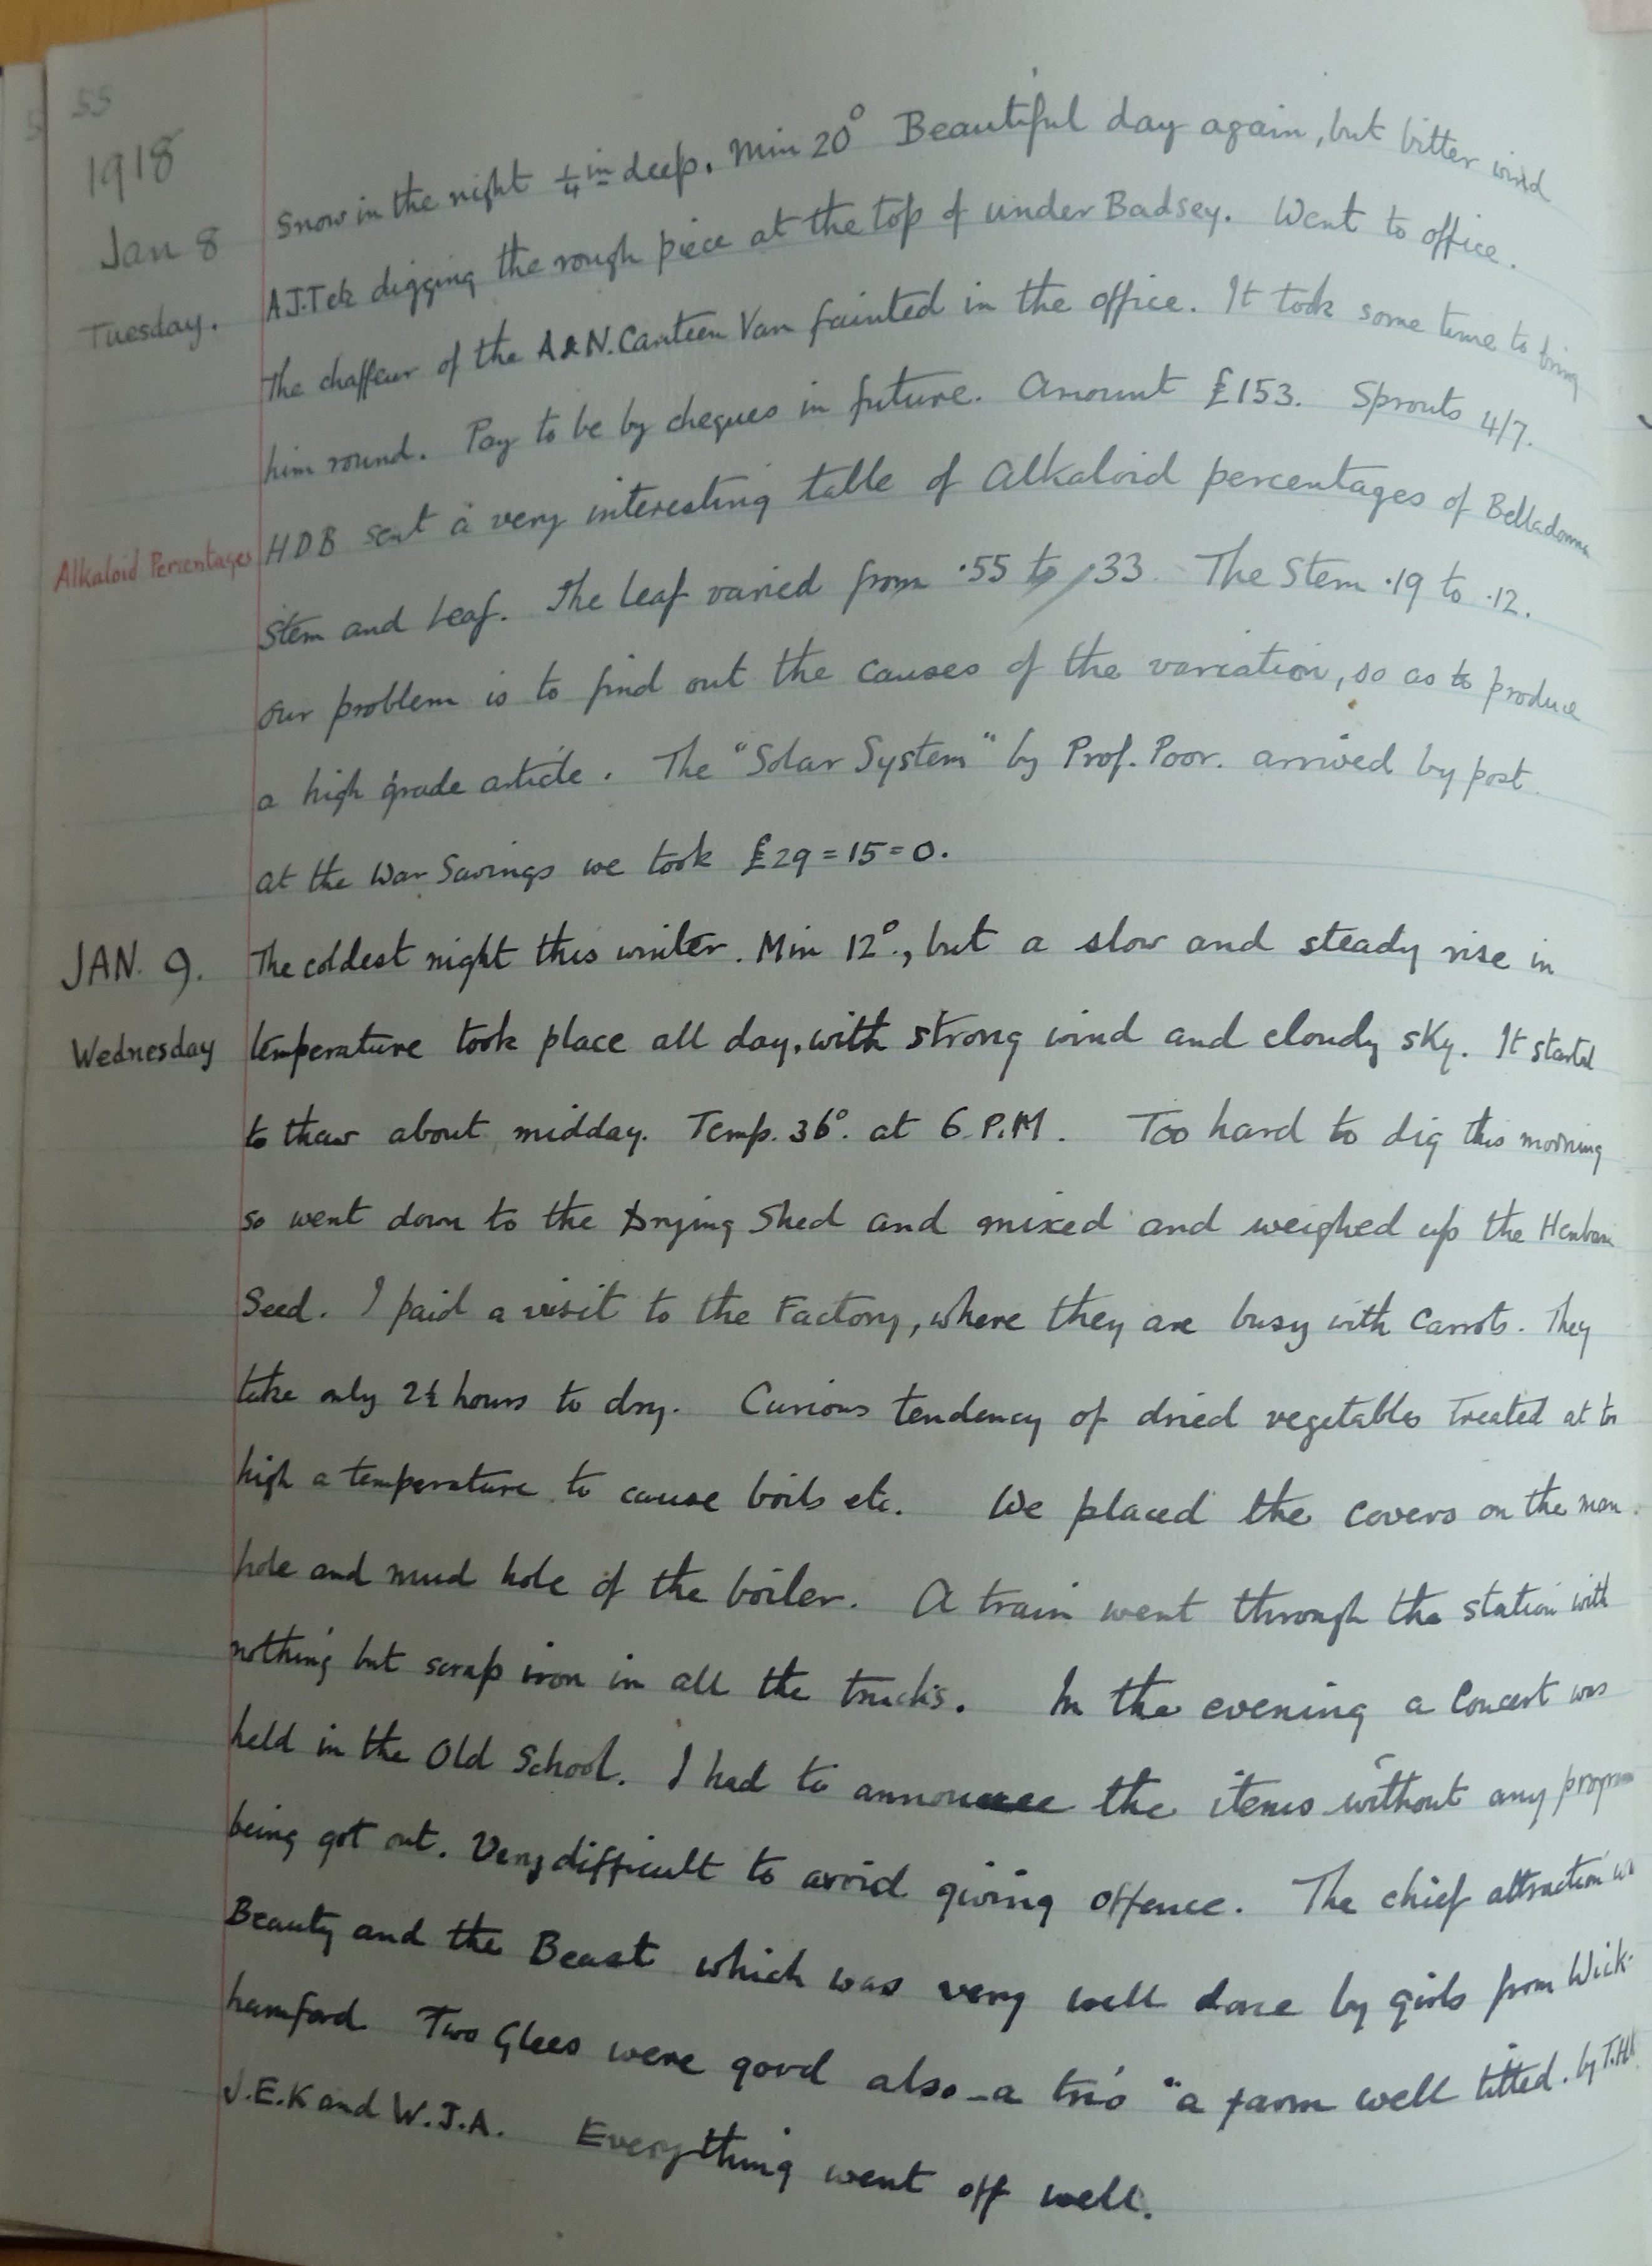 55
1918
Jan 8
Tuesday.
Snow in the night 1/4 in deep. Min 20° Beautiful day again, but bitter wind
A.J.T etc digging the rough piece at the top of under Badsey. Went to office.
The chaffeur of the A & N. Canteen Van fainted in the office. It took some time to bring
him round. Pay to be by cheques in future. Amount £153. Sprouts 4/7.
Alkaloid Percentages
HDB sent a very interesting table of Alkaloid percentages of Belladonna
Stem and Leaf. The Leaf varied from .55 to .33. The Stem .19 to .12.
Our problem is to find out the causes of the variation, so as to produce
a high grade article. The "Solar System" by Prof. Poor. arrived by post.
At the War Savings we took £29=15=0.
JAN. 9.
Wednesday
The coldest night this winter. Min 12°., but a slow and steady rise in
temperature took place all day, with strong wind and cloudy sky. It started
to thaw about midday. Temp. 36°. at 6 P.M. Too hard to dig this morning
so went down to the Drying Shed and mixed and weighed up the Henbane
Seed. I paid a visit to the Factory, where they are busy with Carrots. They
take only 2½ hours to dry. Curious tendency of dried vegetables treated at to
high a temperature to cause boils etc. We placed the covers on the man
hole and mud hole of the boiler. A train went through the station with
nothing but scrap iron in all the trucks. In the evening a Concert was
held in the Old School. I had to announce the items without any program
being got out. Very difficult to avoid giving offence. The chief attraction was
Beauty and the Beast which was very well done by girls from Wick-
hamford. Two Glees were good also – a trio "a farm well tilled. by T.H.
J.E.K and W.J.A. Everything went off well.